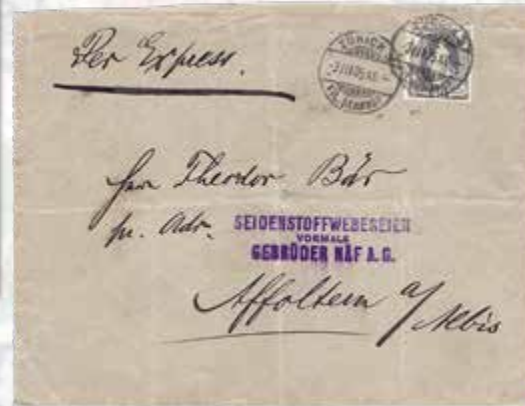 Per Express.
ZÜRICH
Herr Theodor Bär
pr. Adr. SEIDENSTOFFWEBEREIEN
VORMALS
GEBRÜDER NÄF A.G.
Affoltern a/Albis